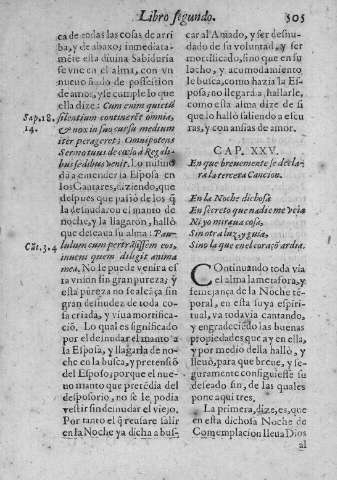 Libro segundo. 305
ca de todas las cosas de arri
ba, y de abaxo; inmediata-
mẽte esta diuina Sabiduria
se vne en el alma, con vn
nueuo ñudo de possession
de amor, y se cumple lo que
ella dize: Cum enim quietũ
Sap. 18. silentium continerẽt omnia,
14. & nox in suo cursu medium
iter perageret: Omnipotens
Sermo tuus de cælo à Regali
bus sedibus venit. Lo mismo
da a entender la Esposa en
los Cantares, diziendo, que
despues que passò de los q̃
la desnudaron el manto de
noche, y la llagaron, hallò
que deseaua su alma: Pau-
Cãt. 3. 4 lulum cum pertrãsissem eos,
inueni quem diligit anima
mea. No se puede venir a es
ta vnion sin gran pureza; y
esta pureza no se alcãça sin
gran desnudez de toda co-
sa criada, y viua mortifica-
ciõ. Lo qual es significado
por el desnudar el manto a
la Esposa, y llagarla de no-
che en la busca, y pretensiõ
del Esposo; porque el nue-
uo manto que pretẽdia del
desposorio, no se le podia
vestir sin desnudar el viejo.
Por tanto el q̃ reusare salir
en la Noche ya dicha a bus-
car al Amado, y ser desnu-
dado de su voluntad, y ser
mortificado, sino que en su
lecho, y acomodamiento
le busca, como hazia la Es-
posa; no llegarà a hallarle,
como esta alma dize de si
que lo hallò saliendo a escu-
ras, y con ansias de amor.
CAP. XXV.
En que breuemente se decla-
ra la tercera Cancion.
En la Noche dichosa
En secreto que nadie me veia
Ni yo miraua cosa,
Sin otra luz, y guia,
Sino la que en el coraçõ ardia.
Continuando toda via
el alma la metafora, y
semejança de la Noche tẽ-
poral, en esta suya espiri-
tual, va todavia cantando,
y engradeciẽdo las buenas
propiedades que ay en ella,
y por medio della hallò, y
lleuò, para que breue, y se-
guramente consiguiesse su
deseado fin, de las quales
pone aqui tres.
La primera, dize, es, que
en esta dichosa Noche de
Contemplacion lleua Dios
al